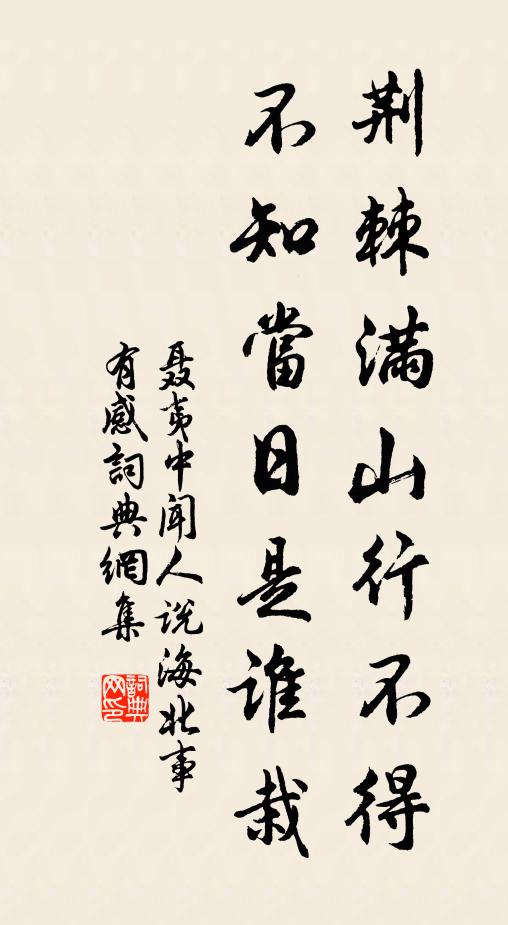 荆棘满山行不得
不知當日是誰栽
聂夷中闻人说海北事
有感詞典網集
詞典
网印